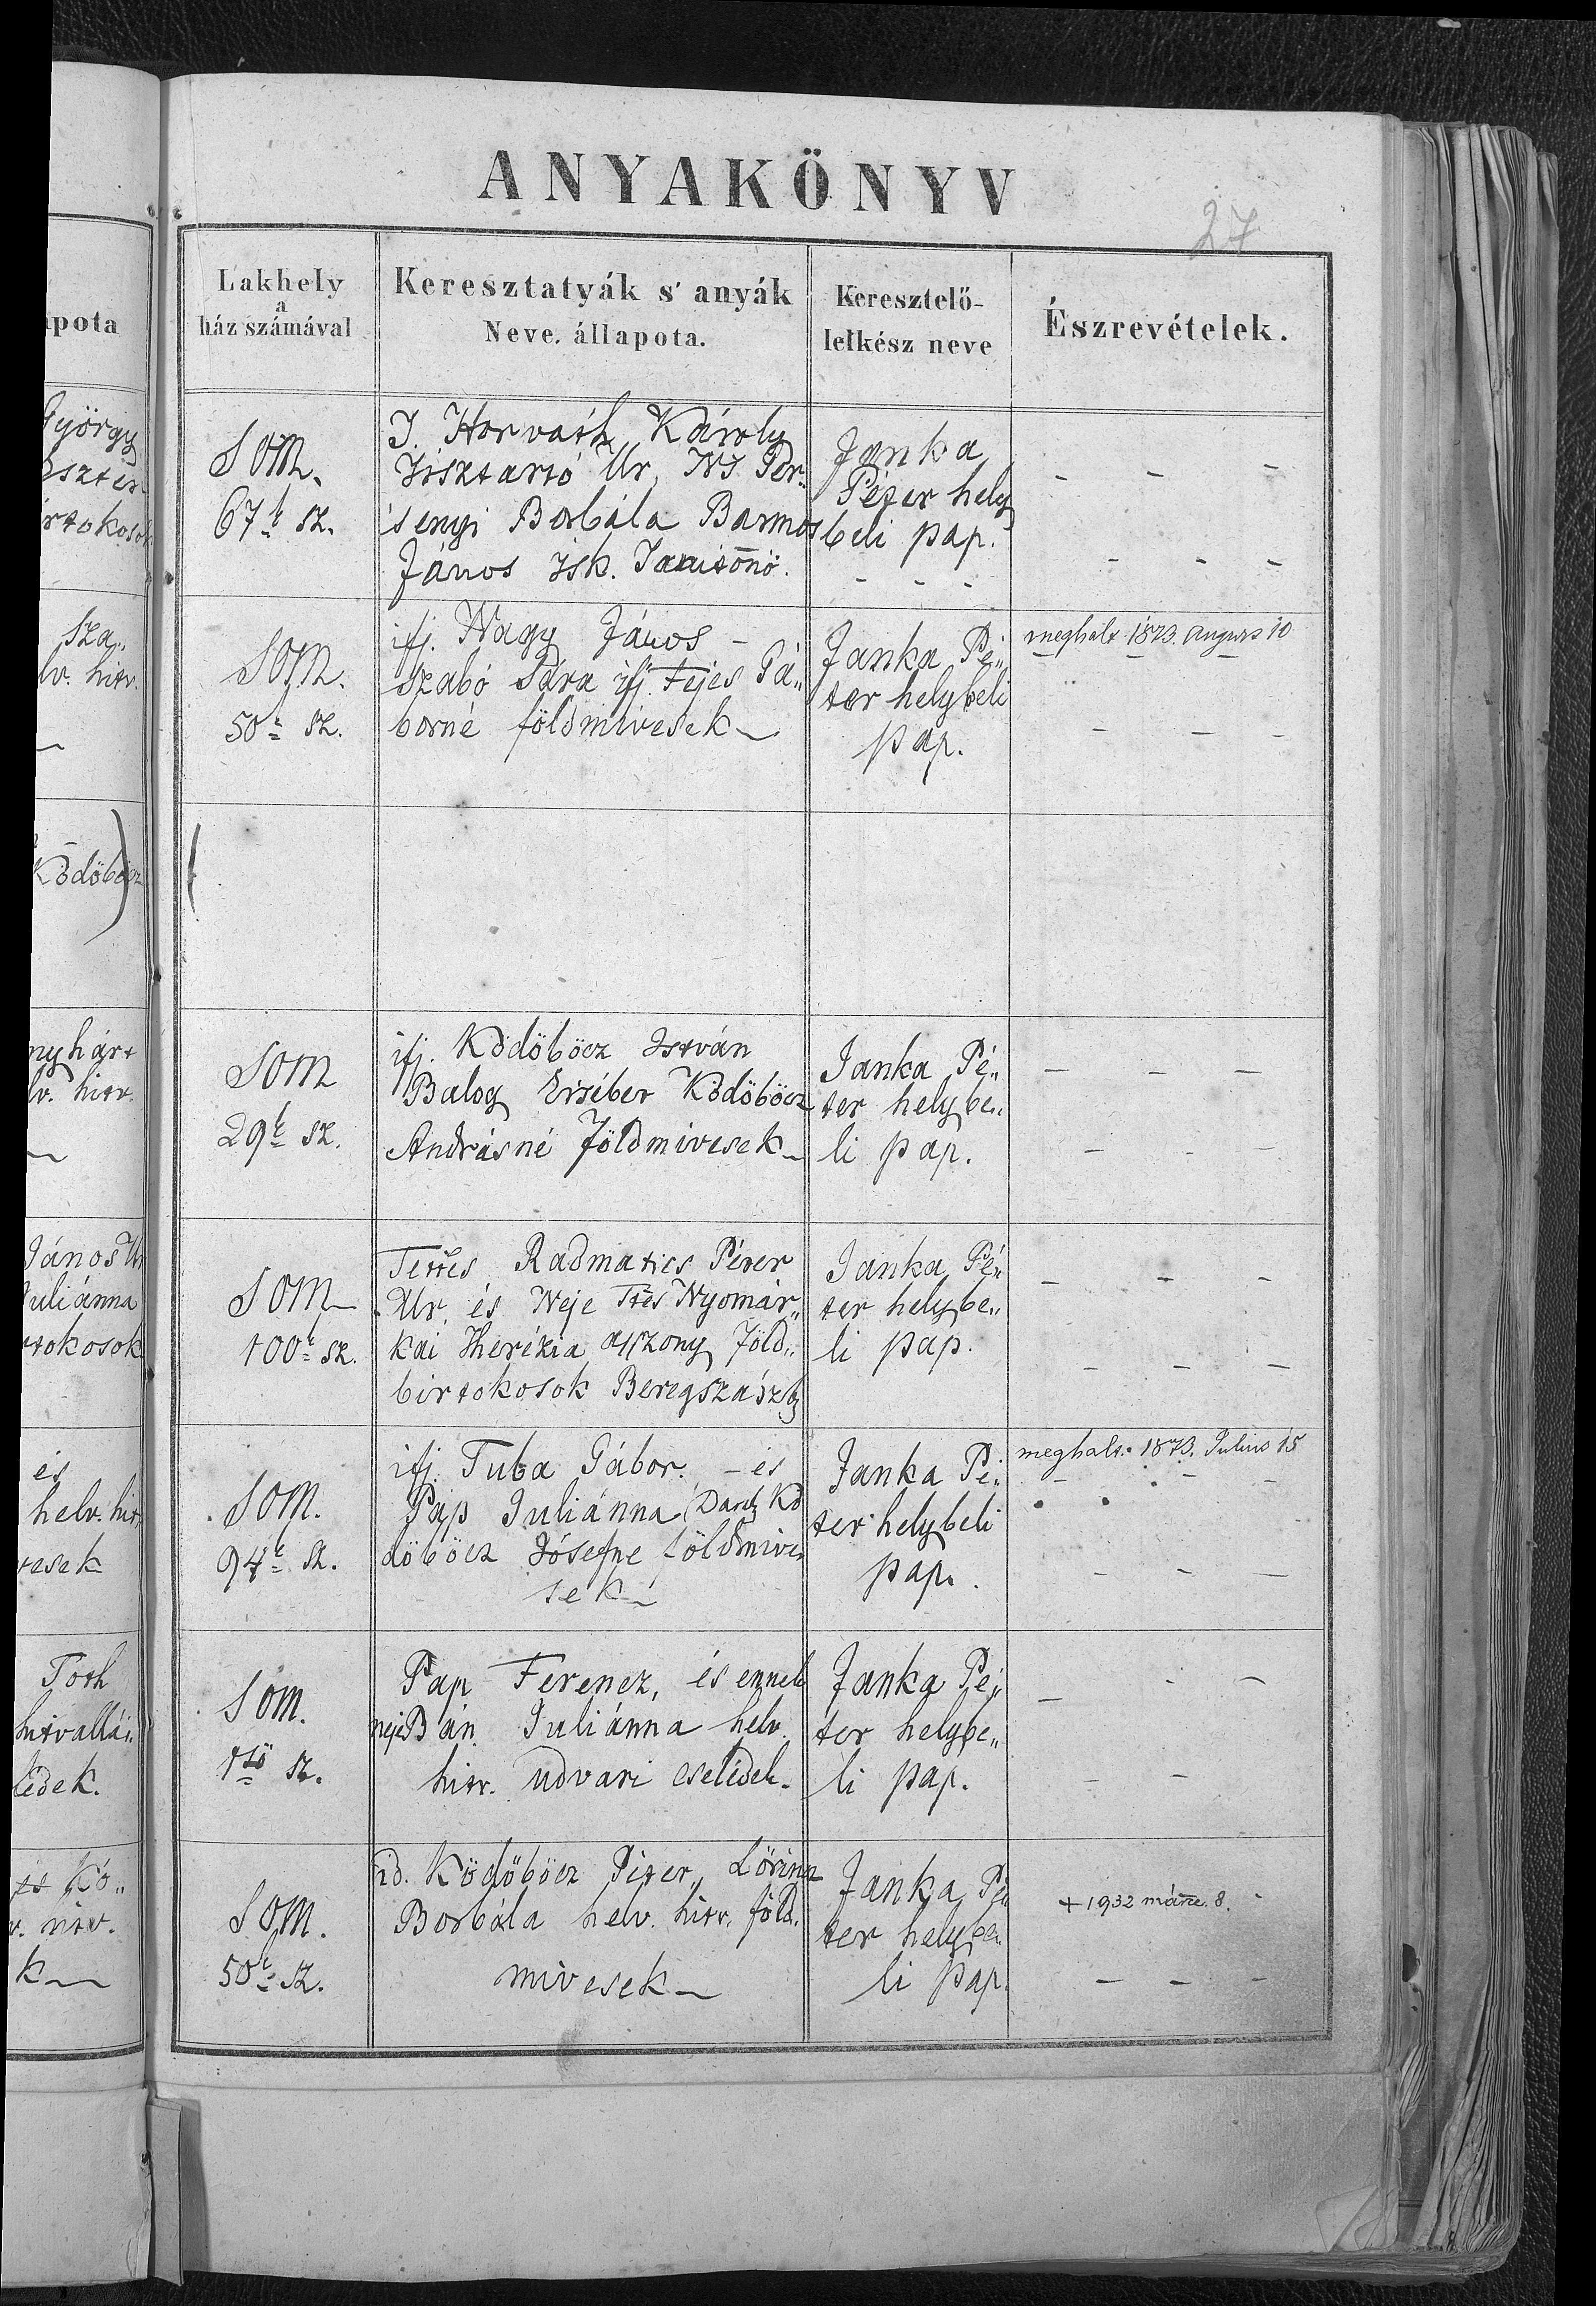 ANYAKÖNYV
27
Lakhely
a
ház számával
Keresztatyák s' anyák
Neve, állapota.
Keresztelő-
lelkész neve
Észrevételek.
apota
György
rtokosok
Som.
67k sz.
I. Horváth Károly
Tisztartó Ur, NS Per„
senyi Borbála Barmos
János isk. Tanitónö.
Janka
Péter hely
beli pap.
sza„
lv. hitv.
Som.
50k sz.
ifj. Nagy János –
Szabó Sára ifj. Fejes Gá„
borné földmivesek
Janka Pé„
ter helybeli
pap.
meghalt 1873. augus 10
Ködöböcz
nyhárt
lv. hitv.
Som
29k sz.
ifj. Ködöböcz István
Balog Ersébet Ködöböcz
Andrásné földmivesek
Janka Pé„
ter helybe„
li pap.
János Ur
Juliánna
rtokosok
Som
100k sz.
Tettes Radmatics Péter
Ur, és Neje Ttes Nyomár„
kai Therézia asszony föld„
birtokosok Beregszász
Janka Pé„
ter helybe„
li pap.
és
helv. hitv.
vesek
Som.
94k sz.
ifj. Tuba Gábor. – és
Pap Juliánna Kö
döböcz Jósefne földmive
sek
Janka Pé„
ter helybeli
pap.
meghalt. 1873. Julius 15
Toth
hitvallás„
lédek.
Som.
1ső sz.
Pap Ferencz, és ennek
neje Bán Juliánna helv.
hitv. udvari cselédek.
Janka Pé„
ter helybe„
li pap.
és Kö„
v. hitv.
k
Som.
50k sz.
id. Ködöböcz Péter, Lörincz
Borbála helv. hitv. föld„
mivesek
Janka Pé„
ter helybe„
li pap.
+ 1932 márc. 8.